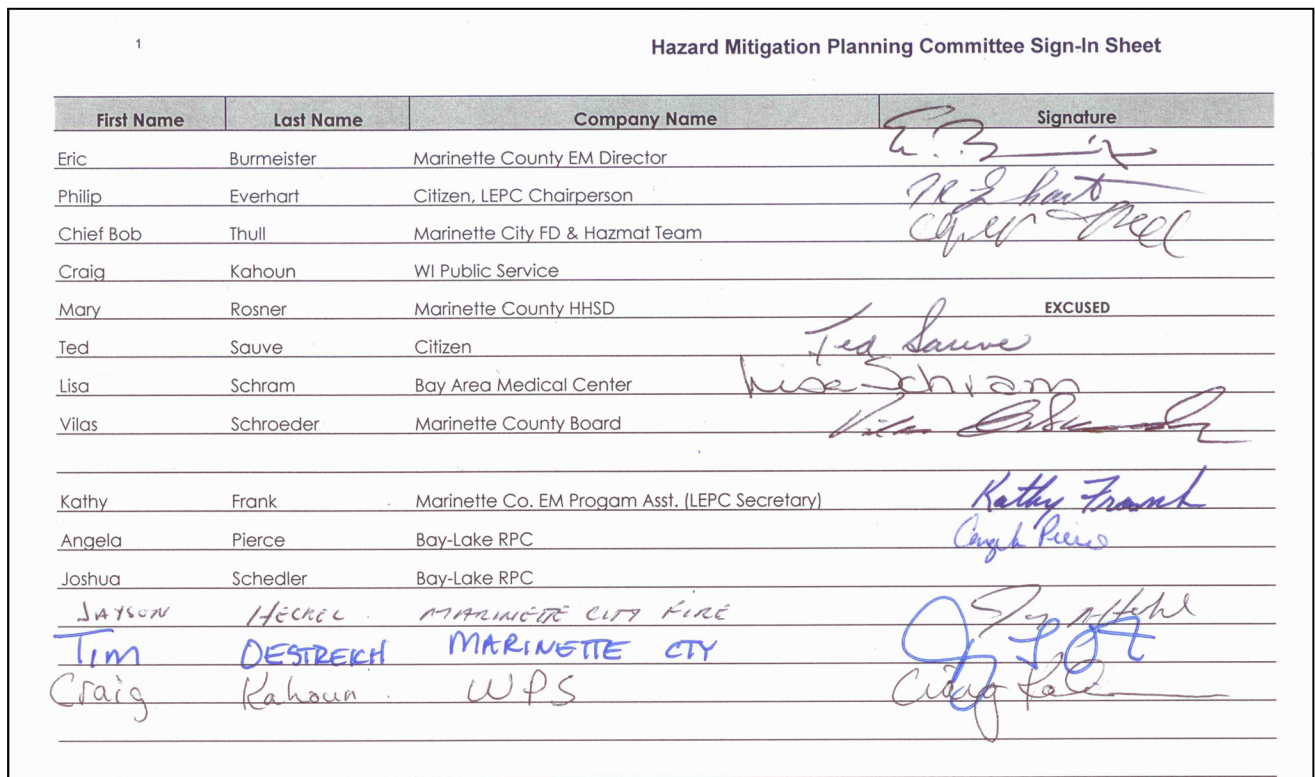 1
Hazard Mitigation Planning Committee Sign-In Sheet
First Name Last Name Company Name Signature
Eric Burmeister Marinette County EM Director
Philip Everhart Citizen, LEPC Chairperson
Chief Bob Thull Marinette City FD & Hazmat Team
Craig Kahoun WI Public Service
Mary Rosner Marinette County HHSD EXCUSED
Ted Sauve Citizen Ted Sauve
Lisa Schram Bay Area Medical Center Lisa Schram
Vilas Schroeder Marinette County Board Vilas
Kathy Frank Marinette Co. EM Progam Asst. (LEPC Secretary) Kathy Frank
Angela Pierce Bay-Lake RPC Angela Pierce
Joshua Schedler Bay-Lake RPC
JAYSON HECKEL MARINETTE CITY FIRE
Tim OESTREICH MARINETTE CTY
Craig Kahoun WPS Craig